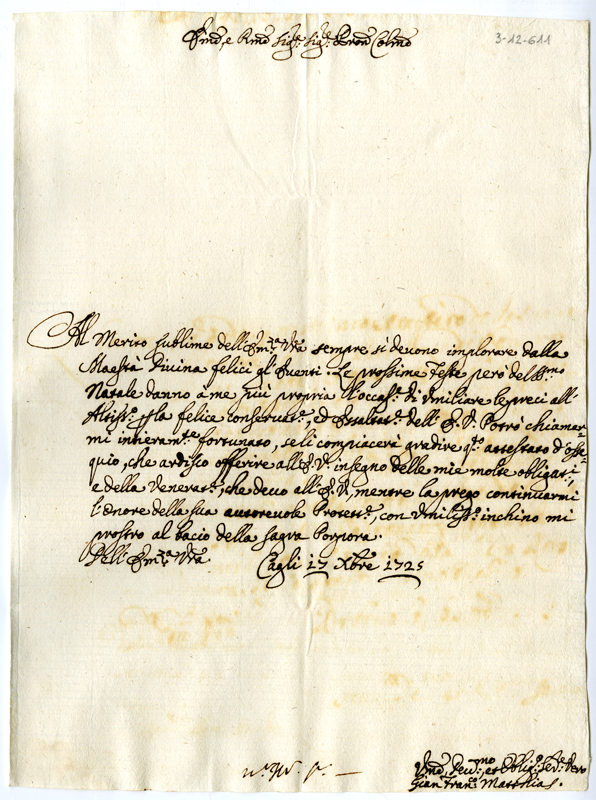 Emo, e Rmo Sig.r Sig.r Pron Colmo
3-12-611
Al Merito sublime dell'Em.za Vra sempre si devono implorare dalla
Maestà Divina felici gl'Euenti. Le prossime Feste però del SS.mo
Natale danno à me più propria l'occas.e di vmiliare le preci all'
Altiss.o p la felice conservat.e, ed Esaltat.e dell'E.V. Potrò chiamar=
mi intieram.te fortunato, se li compiacerà gradire q.to attestato d'osse=
quio, che ardisco offerire all'E.V. in segno delle mie molte obligat.i,
e della Venerat.e, che devo all'E.V., mentre la prego continuarmi
l'Onore della sua autoreuole Protett.e, con vmiliss.o inchino mi
prostro al bacio della Sagra Porpora.
Dell'Em.za Vra Cagli 17 Xbre 1725
Vmo, Deu.mo, et Oblig.o Se.re Vero
Gian Fran.co Matthias.